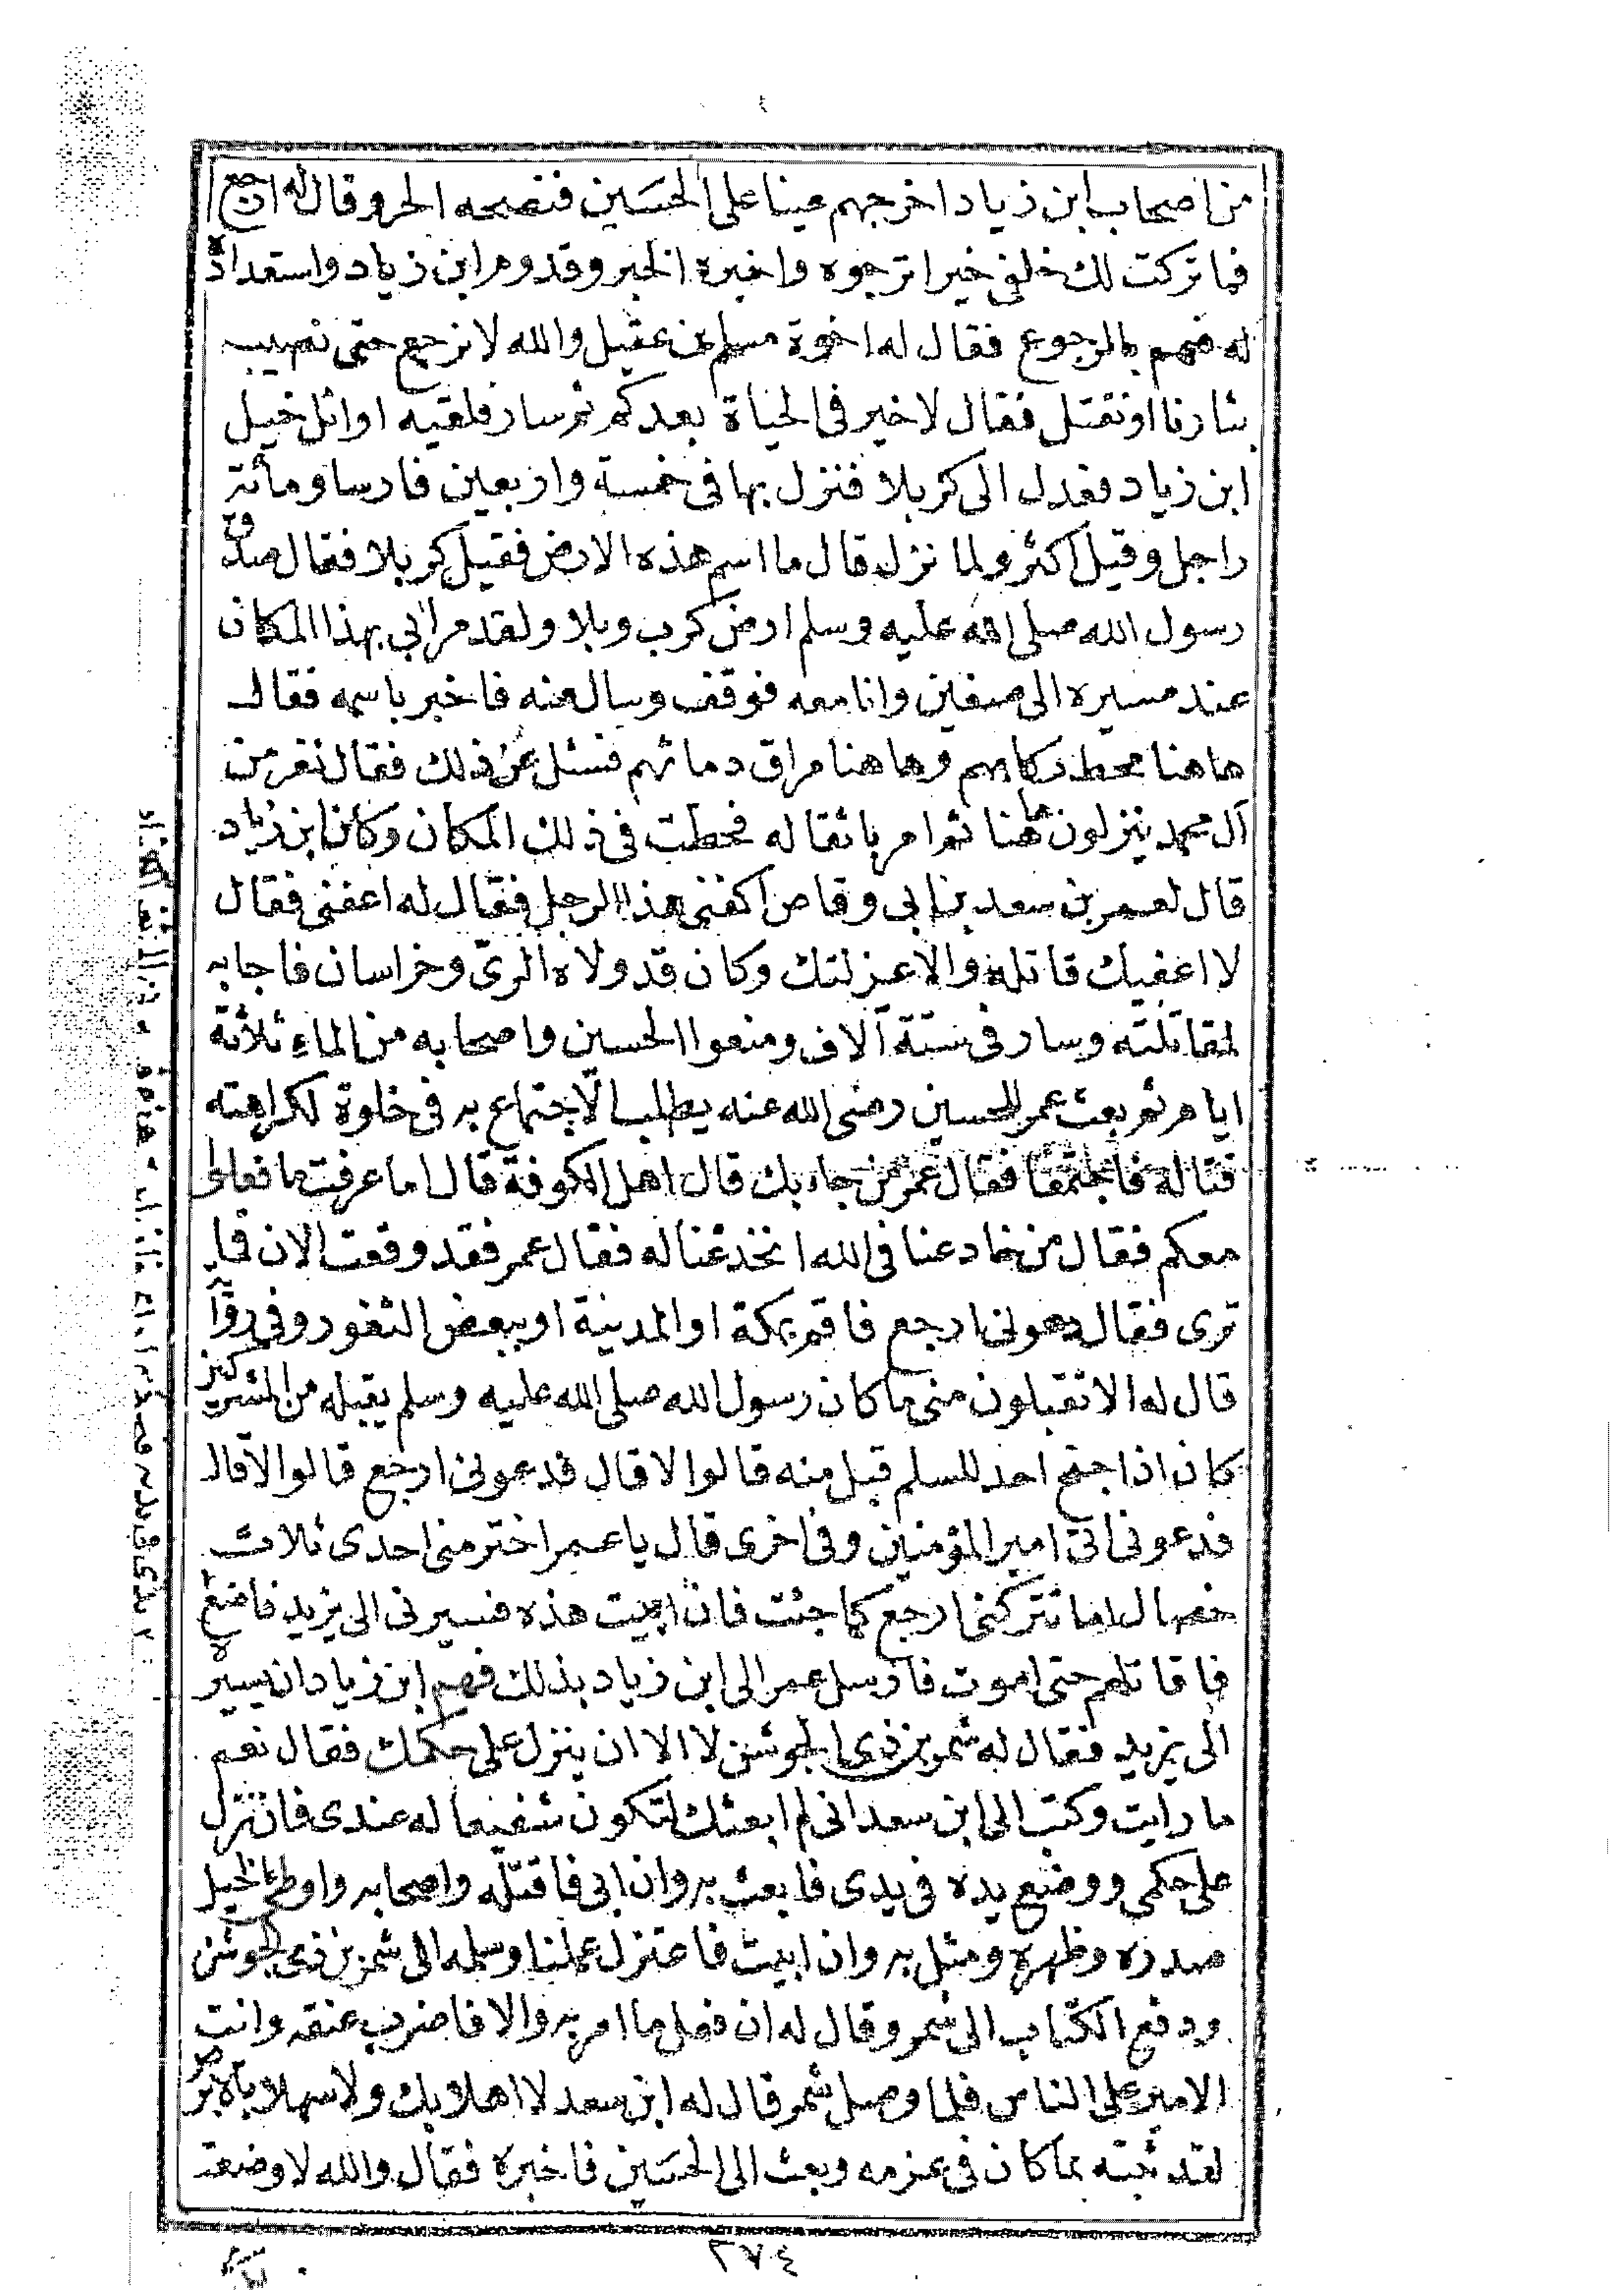 من اصحاب ابن زياد اخرجهم عينا على الحسين فنصحه الحر وقال له ارجع
فما تركت لك خلفى خيرا ترجوه واخبره الخبر وقدوم ابن زياد واستعداده
له فهم بالرجوع فقال له اخوة مسلم بن عقيل والله لا نرجع حتى نصيب
بثارنا او نقتل فقال لا خير فى الحياة بعدكم ثم سار فلقيه اوائل خيل
ابن زياد فعدل الى كربلا فنزل بها فى خمسة واربعين فارسا ومائة
راجل وقيل اكثر ولما نزل قال ما اسم هذه الارض فقيل كربلا فقال صدق
رسول الله صلى الله عليه وسلم ارض كرب وبلا ولقد مر ابي بهذا المكان
عند مسيره الى صفين وانا معه فوقف وسال عنه فاخبر باسمه فقال
هاهنا محط ركابهم وهاهنا مراق دمائهم فسئل عن ذلك فقال نفر من
آل محمد ينزلون هاهنا ثم امر باثقاله فحطت فى ذلك المكان وكان ابن زياد
قال لعمر بن سعد بن ابى وقاص اكفنى هذا الرجل فقال له اعفنى فقال
لا اعفيك قاتله والا عزلتك وكان قد ولاه الرى وخراسان فاجابه
لمقاتلته وسار فى ستة آلاف ومنعوا الحسين واصحابه من الماء ثلاثة
ايام ثم بعث عمر للحسين رضى الله عنه يطلب الاجتماع به فى خلوة لكراهته
قتاله فاجتمعا فقال عمر من جاء بك قال اهل الكوفة قال اما عرفت ما فعالهم
معكم فقال من خادعنا فى الله انخدعنا له فقال عمر فقد وقعت الان فما
ترى فقال دعونى ارجع فاقم بمكة او المدينة او ببعض الثغور وفى رواية
قال له الا تقبلون منى ما كان رسول الله صلى الله عليه وسلم يقبله من المشركين
كان اذا جنح احد للسلم قبل منه قالوا لا قال فدعونى ارجع قالوا لا قال
فدعونى آتى امير المؤمنين وفى اخرى قال يا عمر اختر منى احدى ثلاث
خصال اما تتركنى ارجع كما جئت فان ابيت هذه فسيرنى الى يزيد فاضع
فاقاتلهم حتى اموت فارسل عمر الى ابن زياد بذلك فهم ابن زياد ان يسيره
الى يزيد فقال له شمر بن ذى الجوشن لا الا ان ينزل على حكمك فقال نعم
ما رايت وكتب الى ابن سعد انى لم ابعثك لتكون شفيعا له عندى فان نزل
على حكمى ووضع يده فى يدى فابعث به وان ابى فاقتله واصحابه واوطئ الخيل
صدره وظهره ومثل به وان ابيت فاعتزل عملنا وسلمه الى شمر بن ذى الجوشن
ودفع الكتاب الى شمر وقال له ان فعل ما امر به والا فاضرب عنقه وانت
الامير على الناس فلما وصل شمر قال له ابن سعد لا اهلا بك ولا سهلا يا ابرص
لقد ثبته عما كان فى عزمه وبعث الى الحسين فاخبره فقال والله لا وضعت
٢٧٤